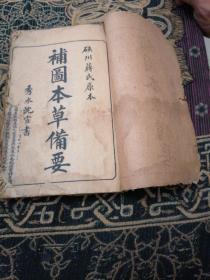 硤州蔣氏原本
補圖本草備要
秀水沈宝書